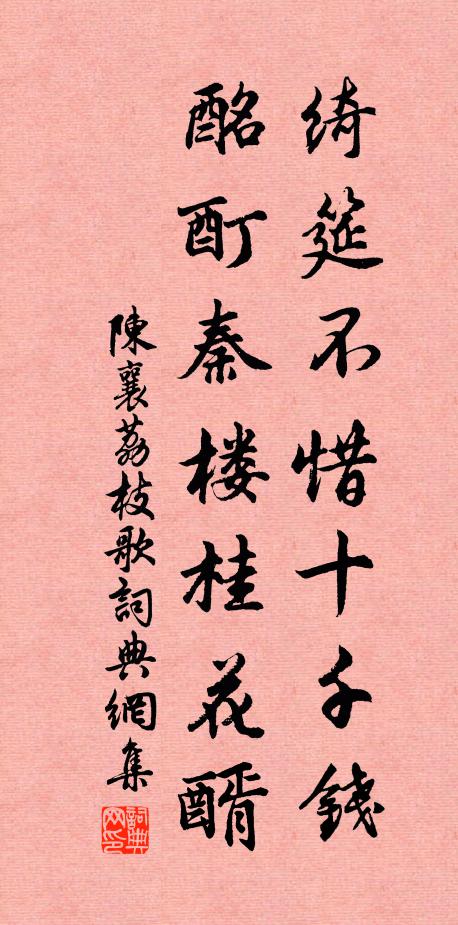 绮筵不惜十千钱
酩酊秦楼桂花醑
陳襄荔枝歌詞典網集
詞典网印